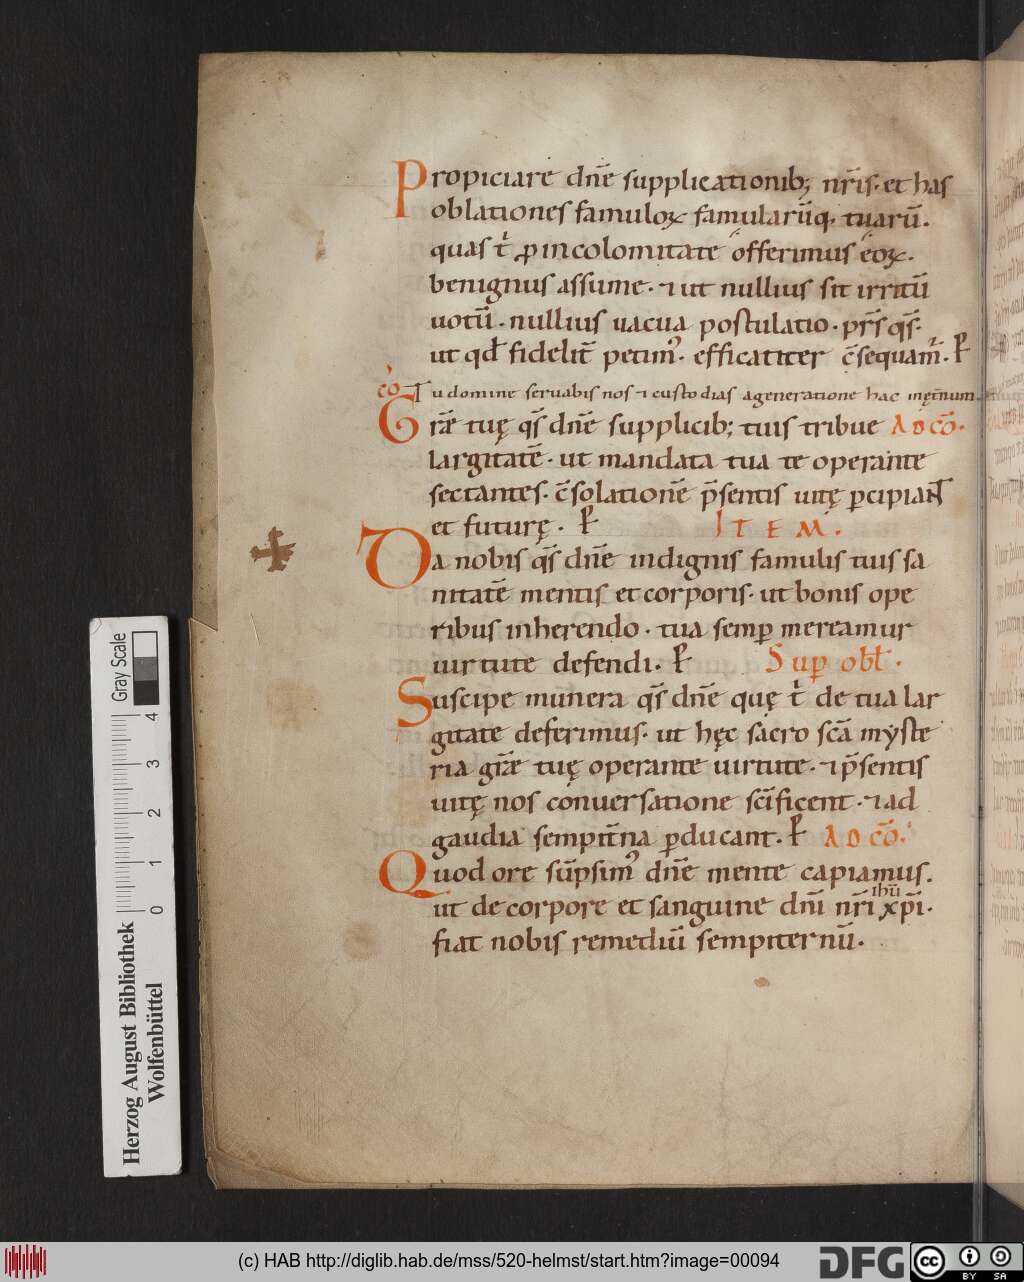 Propiciare dn̄e supplicationib; nr̄is. et has
oblationes famuloꝝ famularūq. tuarū.
quas t̄ ꝓ incolomitate offerimus eoꝝ.
benignus assume. ⁊ ut nullius sit irritū
uotū. nullius uacua postulatio. pr̄s qs̄.
ut qd̄ fidelit̄ petimꝰ. efficatiter c̄sequam̄. P̱
cō Tu domine seruabis nos ⁊ custodias a generatione hac
Gr̄æ tuę qs̄ dn̄e supplicib; tuis tribue AD CŌ.
largitatē. ut mandata tua te operante
sectantes. c̄solationē p̄sentis uitę ꝑcipiant
et futurę. ITEM.
Da nobis qs̄ dn̄e indignis famulis tuis sa
nitatē mentis et corporis. ut bonis ope
ribus inherendo. tua semꝑ mereamur
uirtute defendi. Suꝑ obł.
Suscipe munera qs̄ dn̄e quę t̄ de tua lar
gitate deferimus. ut hęc sacro scā myste
ria gr̄æ tuę operante uirtute. ⁊ p̄sentis
uitę nos conuersatione sc̄ificent. ⁊ ad
gaudia sempit̄na ꝑducant. AD CŌ.
Quod ore sūpsimꝰ dn̄e mente capiamus.
ihū
ut de corpore et sanguine dn̄i nr̄i xp̄i.
fiat nobis remediū sempiternū.
Gray Scale
0 1 2 3 4
Herzog August Bibliothek
Wolfenbüttel
(c) HAB http://diglib.hab.de/mss/520-helmst/start.htm?image=00094
DFG
cc BY SA